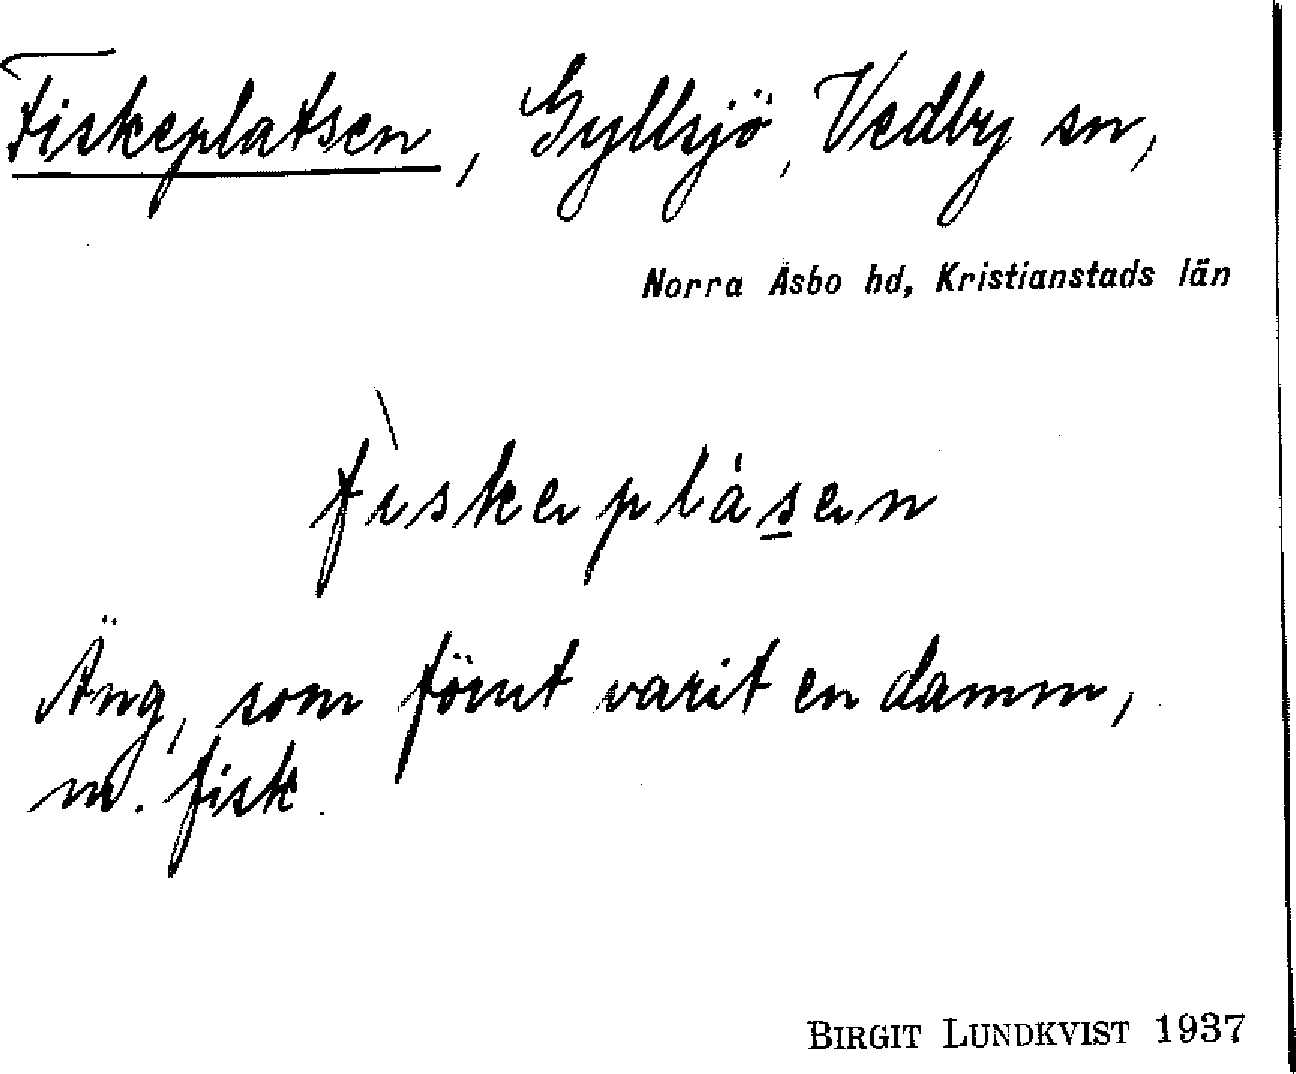 Fiskeplatsen, Gyllsjö, Vedby sn,
Norra Åsbo hd, Kristianstads län
fìskeplȧs̲en
Äng, som förut varit en damm,
m. fisk.
BIRGIT LUNDKVIST 1937